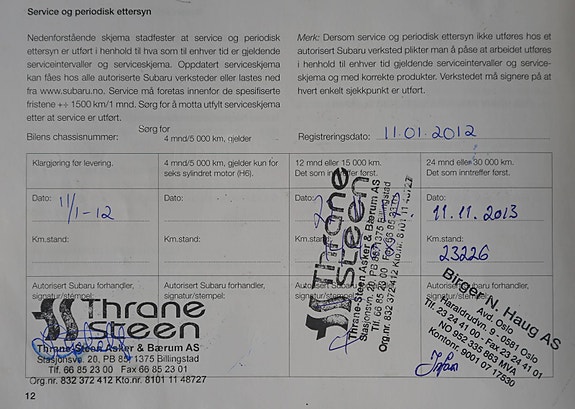 Service og periodisk ettersyn
Nedenforstående skjema stadfester at service og periodisk
ettersyn er utført i henhold til hva som til enhver tid er gjeldende
serviceintervaller og serviceskjema. Oppdatert serviceskjema
kan fåes hos alle autoriserte Subaru verksteder eller lastes ned
fra www.subaru.no. Service må foretas innenfor de spesifiserte
fristene ++ 1500 km/1 mnd. Sørg for å motta utfylt serviceskjema
etter at service er utført.
Merk: Dersom service og periodisk ettersyn ikke utføres hos et
autorisert Subaru verksted plikter man å påse at arbeidet utføres
i henhold til enhver tid gjeldende serviceintervaller og service-
skjema og med korrekte produkter. Verkstedet må signere på at
hvert enkelt sjekkpunkt er utført.
Sørg for
Bilens chassisnummer:
4 mnd/5 000 km, gjelder
Registreringsdato: 11.01.2012
Klargjøring før levering.
4 mnd/5 000 km, gjelder kun for
seks sylindret motor (H6).
12 mnd eller 15 000 km.
Det som inntreffer først.
24 mnd eller 30 000 km.
Det som inntreffer først.
Dato: 11/1-12
Dato:
Dato:
Dato:
11.11.2013
Km.stand:
Km.stand:
Km.stand:
23226
Autorisert Subaru forhandler,
signatur/stempel:
Autorisert Subaru forhandler,
signatur/stempel:
Thrane
Steen
Thrane-Steen Asker & Bærum AS
Stasjonsvn. 20, PB 85, 1375 Billingstad
Tlf. 66 85 23 00 Fax 66 85 23 01
Org.nr. 832 372 412 Kto.nr. 8101 11 48727
Thrane
Steen
Thrane-Steen Asker & Bærum AS
Stasjonsvn. 20, PB 85, 1375 Billingstad
Tlf. 66 85 23 00 Fax 66 85 23 01
Org.nr. 832 372 412 Kto.nr. 8101 11 48727
Birger N. Haug AS
Avd. Oslo
Haraldrudvn. 0581 Oslo
Tlf. 23 24 41 00 - Fax 23 24 41 01
NO 952 335 863 MVA
Kontonr. 9001 07 17530
12